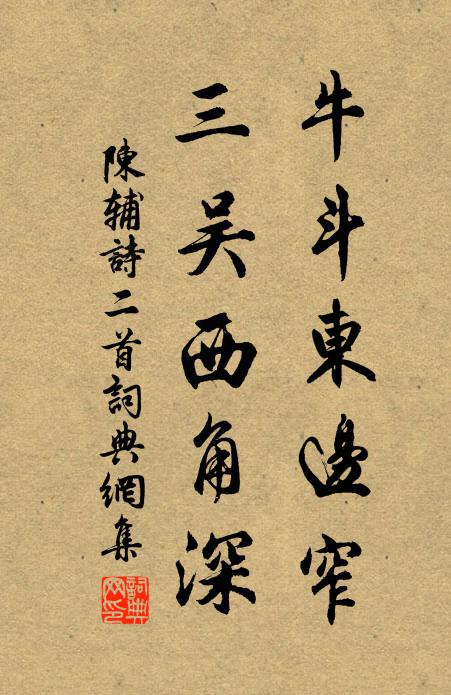 牛斗東邊窄
三吴西角深
陳辅詩二首詞典網集
詞典網印